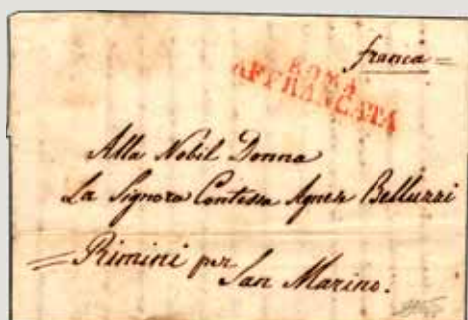 franca
ROMA
AFFRANCATA
Alla Nobil Donna
La Signora Contessa Agnese Belluzzi
Rimini per
San Marino.